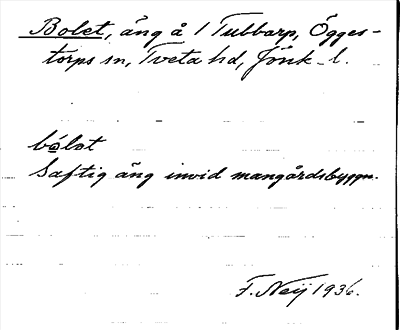 Bolet, äng å 1 Tubbarp, Ögges-
torps sn, Tveta hd, Jönk. l.
bólət
Saftig äng invid mangårdsbyggn.
F. Neij 1936.